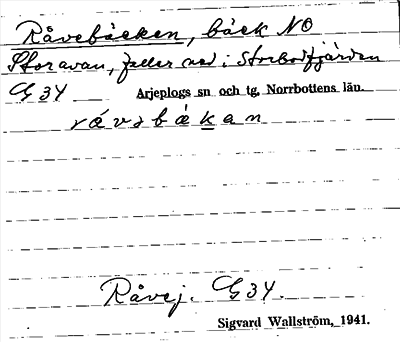 Råvebäcken, bäck NO
Storavan, faller ned i Storbodfjärden
G 34 Arjeplogs sn och tg, Norrbottens län.
råvsbäkan
Råvej. G 34.
Sigvard Wallström, 1941.